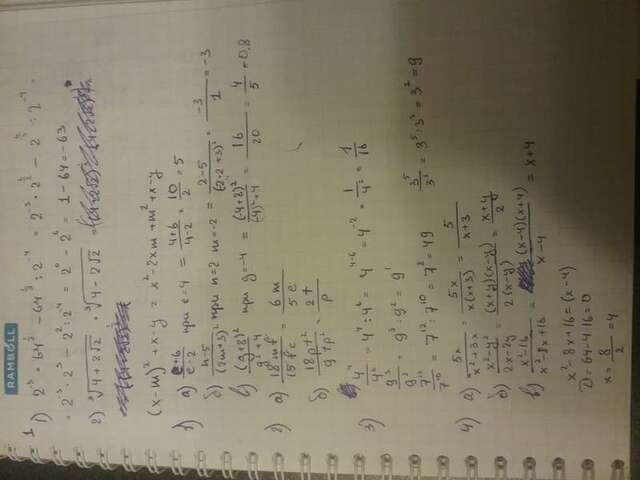 RAMBOLL
1
1) 2⁻³ · 64^½ − 64^⅓ : 2⁻⁴ = 2⁻³ · 2^(6/2) − 2^(6/3) : 2⁻⁴ =
= 2⁻³ · 2³ − 2² : 2⁴ = 2⁰ − 2⁶ = 1 − 64 = −63
2) ³√4+2√2 · ³√4−2√2
(x−m)² + x−y = x² − 2xm + m² + x−y
1) а) e+6/e−2 при e=4 = 4+6/4−2 = 10/2 = 5
б) n−5/(2m+3)² при n=2 m=−2 = 2−5/(2·2+3)² = −3/1 = −3
в) (g+8)²/g²+4 при g=−4 = (−4+8)²/(−4)²+4 = 16/20 = 4/5 = 0,8
2) а) 18mf/15fc = 6m/5c
б) 18pt²/9tp² = 2t/p
3) 4⁴/4⁶ = 4⁴ : 4⁶ = 4⁴⁻⁶ = 4⁻² = 1/4² = 1/16
9³/9² = 9³ : 9² = 9¹
7¹²/7¹⁰ = 7¹² : 7¹⁰ = 7² = 49
3⁵/3³ = 3⁵ : 3³ = 3² = 9
4) а) 5x/x²+3x = 5x/x(x+3) = 5/x+3
б) x²−y²/2x−2y = (x+y)(x−y)/2(x−y) = x+y/2
в) x²−16/x²−8x+16 = (x−4)(x+4)/x−4 = x+4
x²−8x+16 = (x−4)
D = 64−4·16 = 0
x = 8/2 = 4